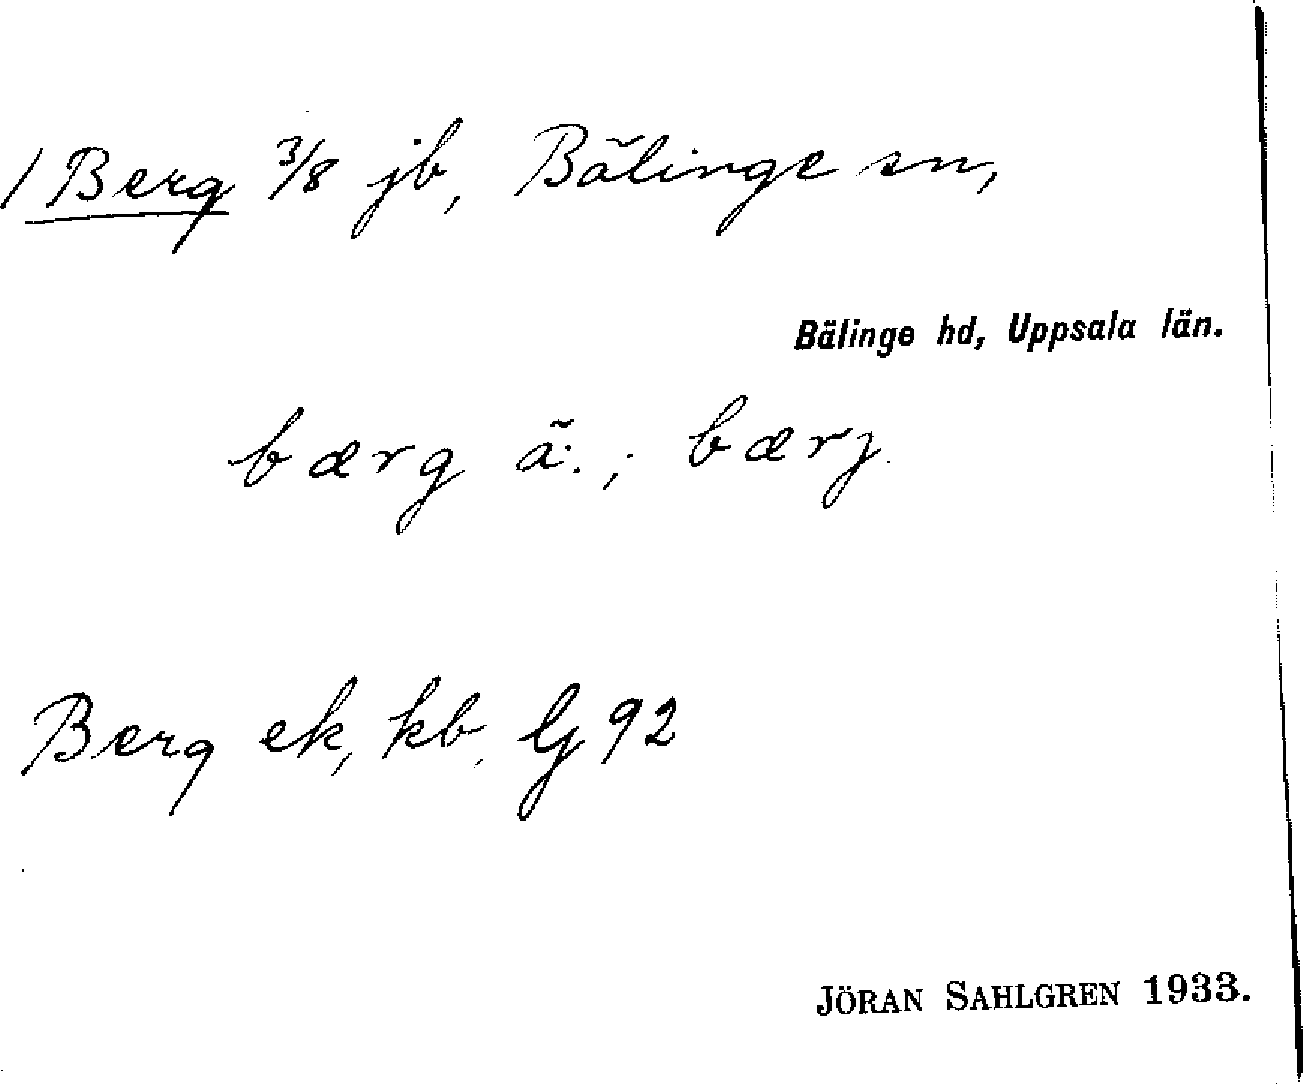 1 Berg 3/8 jb, Bälinge sn,
Bälinge hd, Uppsala län.
bærg ä.; bærj.
Berg ek, kb, G 92
JÖRAN SAHLGREN 1933.